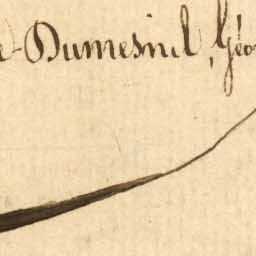 e-Dumesnil, Géo